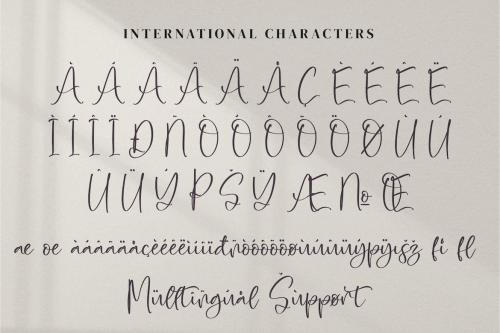 INTERNATIONAL CHARACTERS
À Á Â Ã Ä Å Ç È É Ê Ë
Ì Í Î Ï Ð Ñ Ò Ó Ô Õ Ö Ø Ù Ú
Û Ü Ý Þ Š Ÿ Æ № Œ
æ œ àáâãäåçèéêëìíîïđñòóôõöøùúûüýþÿışšž fi fl
Mülltìngúàl Šùppört